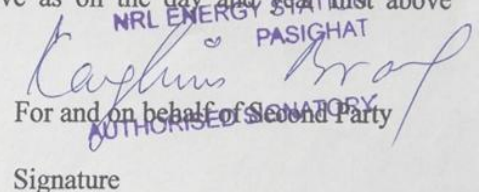 as on the day and year first above
NRL ENERGY STATION
PASIGHAT
For and on behalf of Second Party
AUTHORISED SIGNATORY
Signature